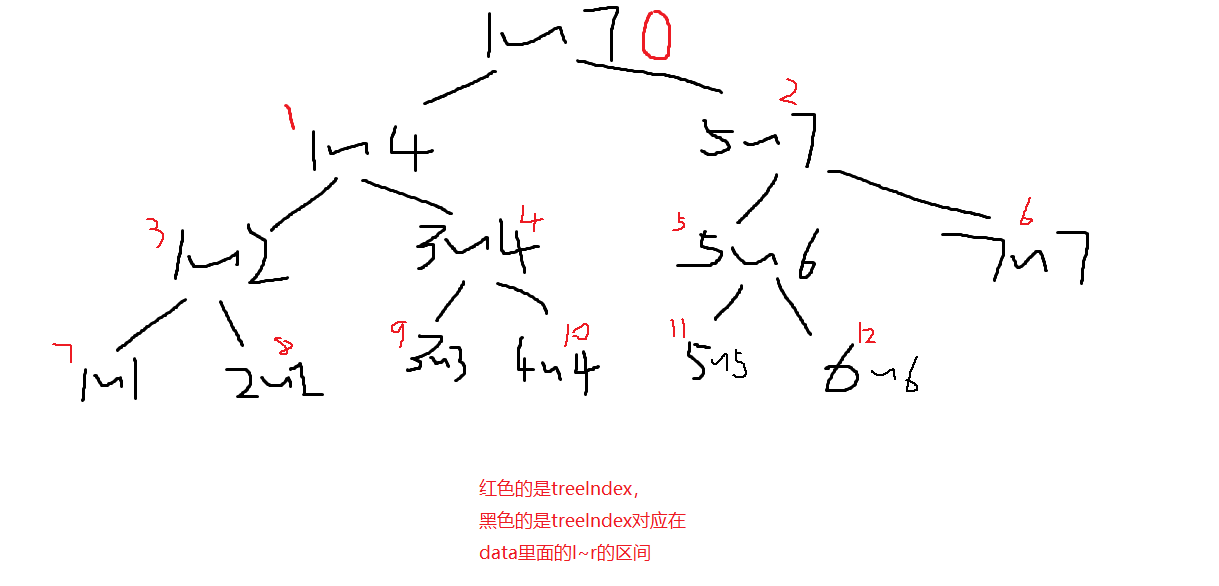 1~7 0
1 1~4 2 5~7
3 1~2 4 3~4 5 5~6 6 7~7
7 1~1 8 2~2 9 3~3 10 4~4 11 5~5 12 6~6
红色的是treeIndex，
黑色的是treeIndex对应在
data里面的l~r的区间